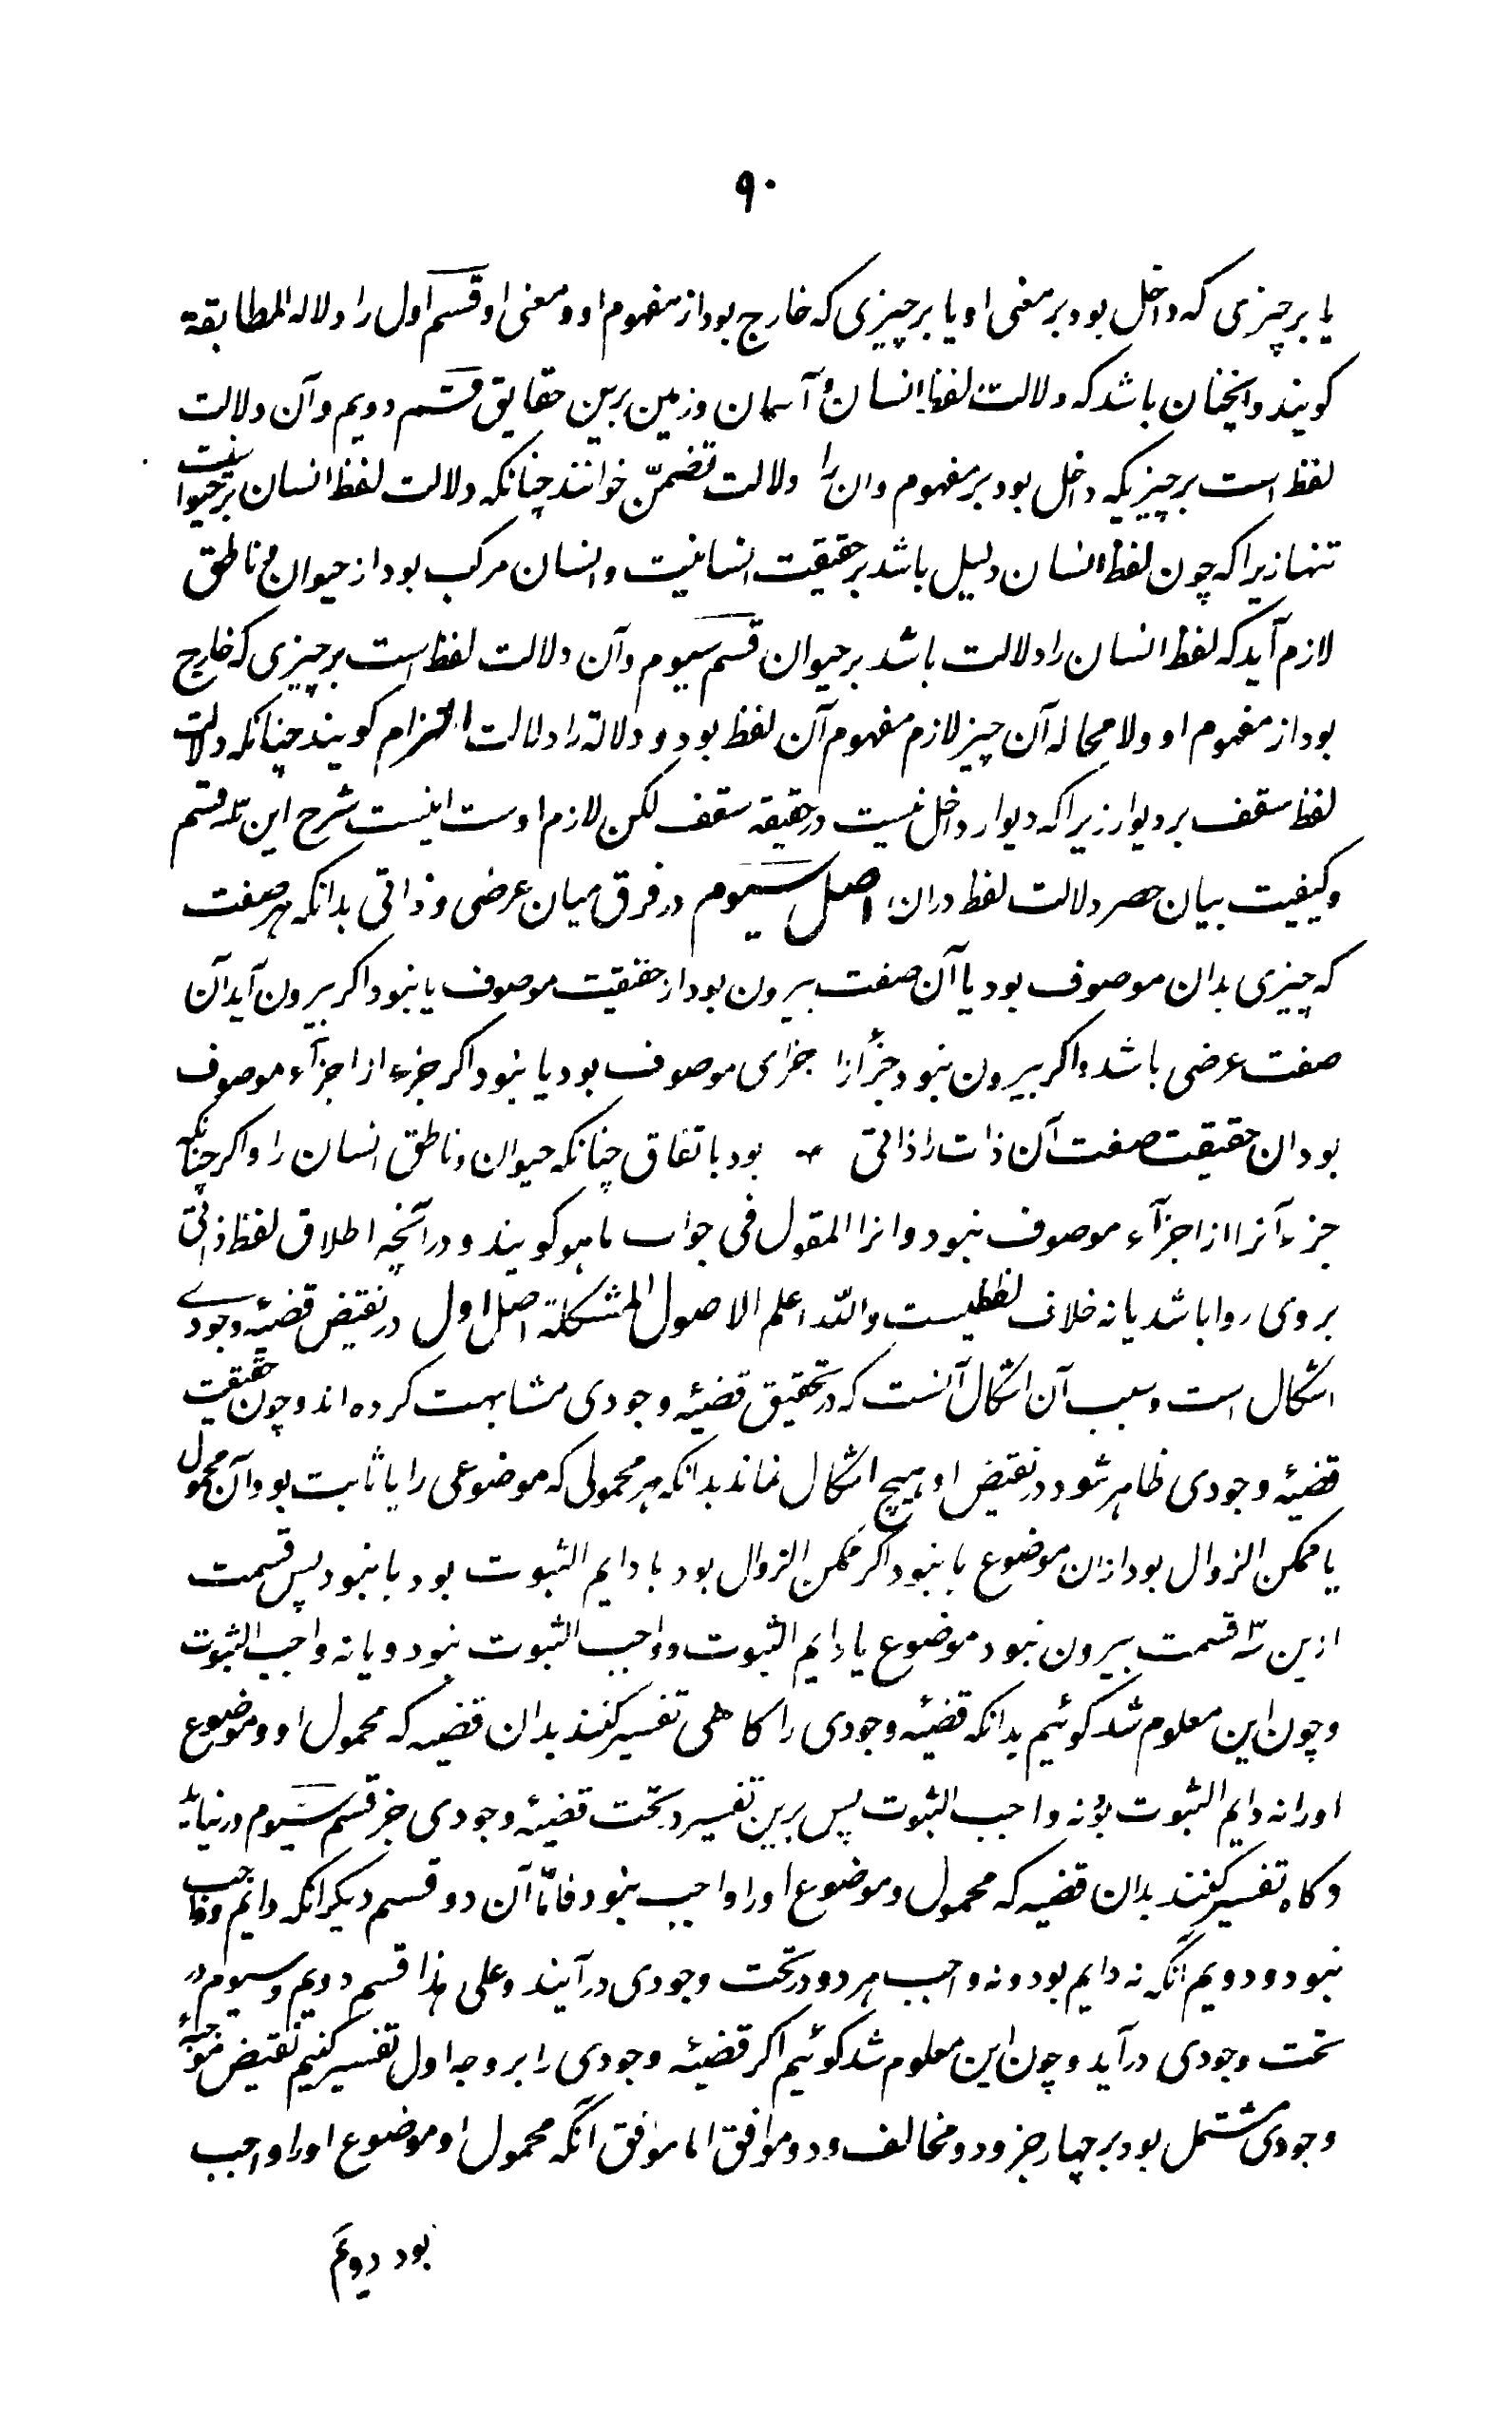 ۹۰
یا بر چیزی که داخل بود بر معنی او یا بر چیزی که خارج بود از مفهوم او و معنی او قسم اول را دلاله المطابقة
کویند و اینچنان باشد که دلالت لفظ انسان و آسمان و زمین برین حقایق قسم دویم و آن دلالت
لفظ است بر چیزیکه داخل بود بر مفهوم و ان را دلالت تضمّن خوانند چنانکه دلالت لفظ انسان بر حیوانیت
تنها زیرا که چون لفظ انسان دلیل باشد بر حقیقت انسانیت و انسان مرکب بود از حیوان و ناطق
لازم آید که لفظ انسان را دلالت باشد بر حیوان قسم سیوم و آن دلالت لفظ است بر چیزی که خارج
بود از مفهوم او و لا محاله آن چیز لازم مفهوم آن لفظ بود و دلالة را دلالت التزام کویند چنانکه دلالت
لفظ سقف بر دیوار زیرا که دیوار داخل نیست در حقیقه سقف لکن لازم اوست اینست شرح این سه قسم
و کیفیت بیان حصر دلالت لفظ دران اصل سیوم در فرق میان عرضی و ذاتی بدانکه هر صفت
که چیزی بدان موصوف بود یا آن صفت بیرون بود از حقیقت موصوف یا نبود اکر بیرون آید آن
صفت عرضی باشد و اکر بیرون نبود جزأ از اجزای موصوف بود یا نبود اکر جزء از اجزآء موصوف
بود ان حقیقت صفت آن ذات را ذاتی بود باتفاق چنانکه حیوان و ناطق انسان را و اکر چنانکه
جزء آنرا از اجزآء موصوف نبود و انرا المقول فی جواب ماهو کویند و در آنچه اطلاق لفظ ذاتی
بروی روا باشد یا نه خلاف لفظیست والله اعلم الاصول المشکلة اصل اول در نقیض قضیهٔ وجودی
اشکال است و سبب آن اشکال آنست که در تحقیق قضیهٔ وجودی مشابهت کرده اند و چون حقیقت
قضیهٔ وجودی ظاهر شود در نقیض او هیچ اشکال نماند بدانکه هر محمولی که موضوعی را یا ثابت بود آن محمول
یا ممکن الزوال بود ازان موضوع یا نبود اکر ممکن الزوال بود یا دایم الثبوت بود یا نبود پس قسمت
ازین سه قسمت بیرون نبود موضوع یا دایم الثبوت و واجب الثبوت نبود و یا نه واجب الثبوت
و چون این معلوم شد کوئیم بدانکه قضیهٔ وجودی را کاهی تفسیر کنند بدان قضیه که محمول او و موضوع
اورا نه دایم الثبوت بود نه واجب الثبوت پس برین تفسیر در تحت قضیهٔ وجودی جز قسم سیوم در نیاید
و کاه تفسیر کنند بدان قضیه که محمول و موضوع اورا واجب نبود فامّا آن دو قسم دیکر انکه دایم و واجب
نبود و دویم آنکه نه دایم بود و نه واجب هر دو در تحت وجودی در آیند و علی هذا قسم دویم و سیوم در
تحت وجودی در آید و چون این معلوم شد کوئیم اکر قضیهٔ وجودی را بر وجه اول تفسیر کنیم نقیض موجبهٔ
وجودی مشتمل بود بر چهار جزو دو مخالف و دو موافق اما موافق آنکه محمول او موضوع اورا واجب
بود دویم